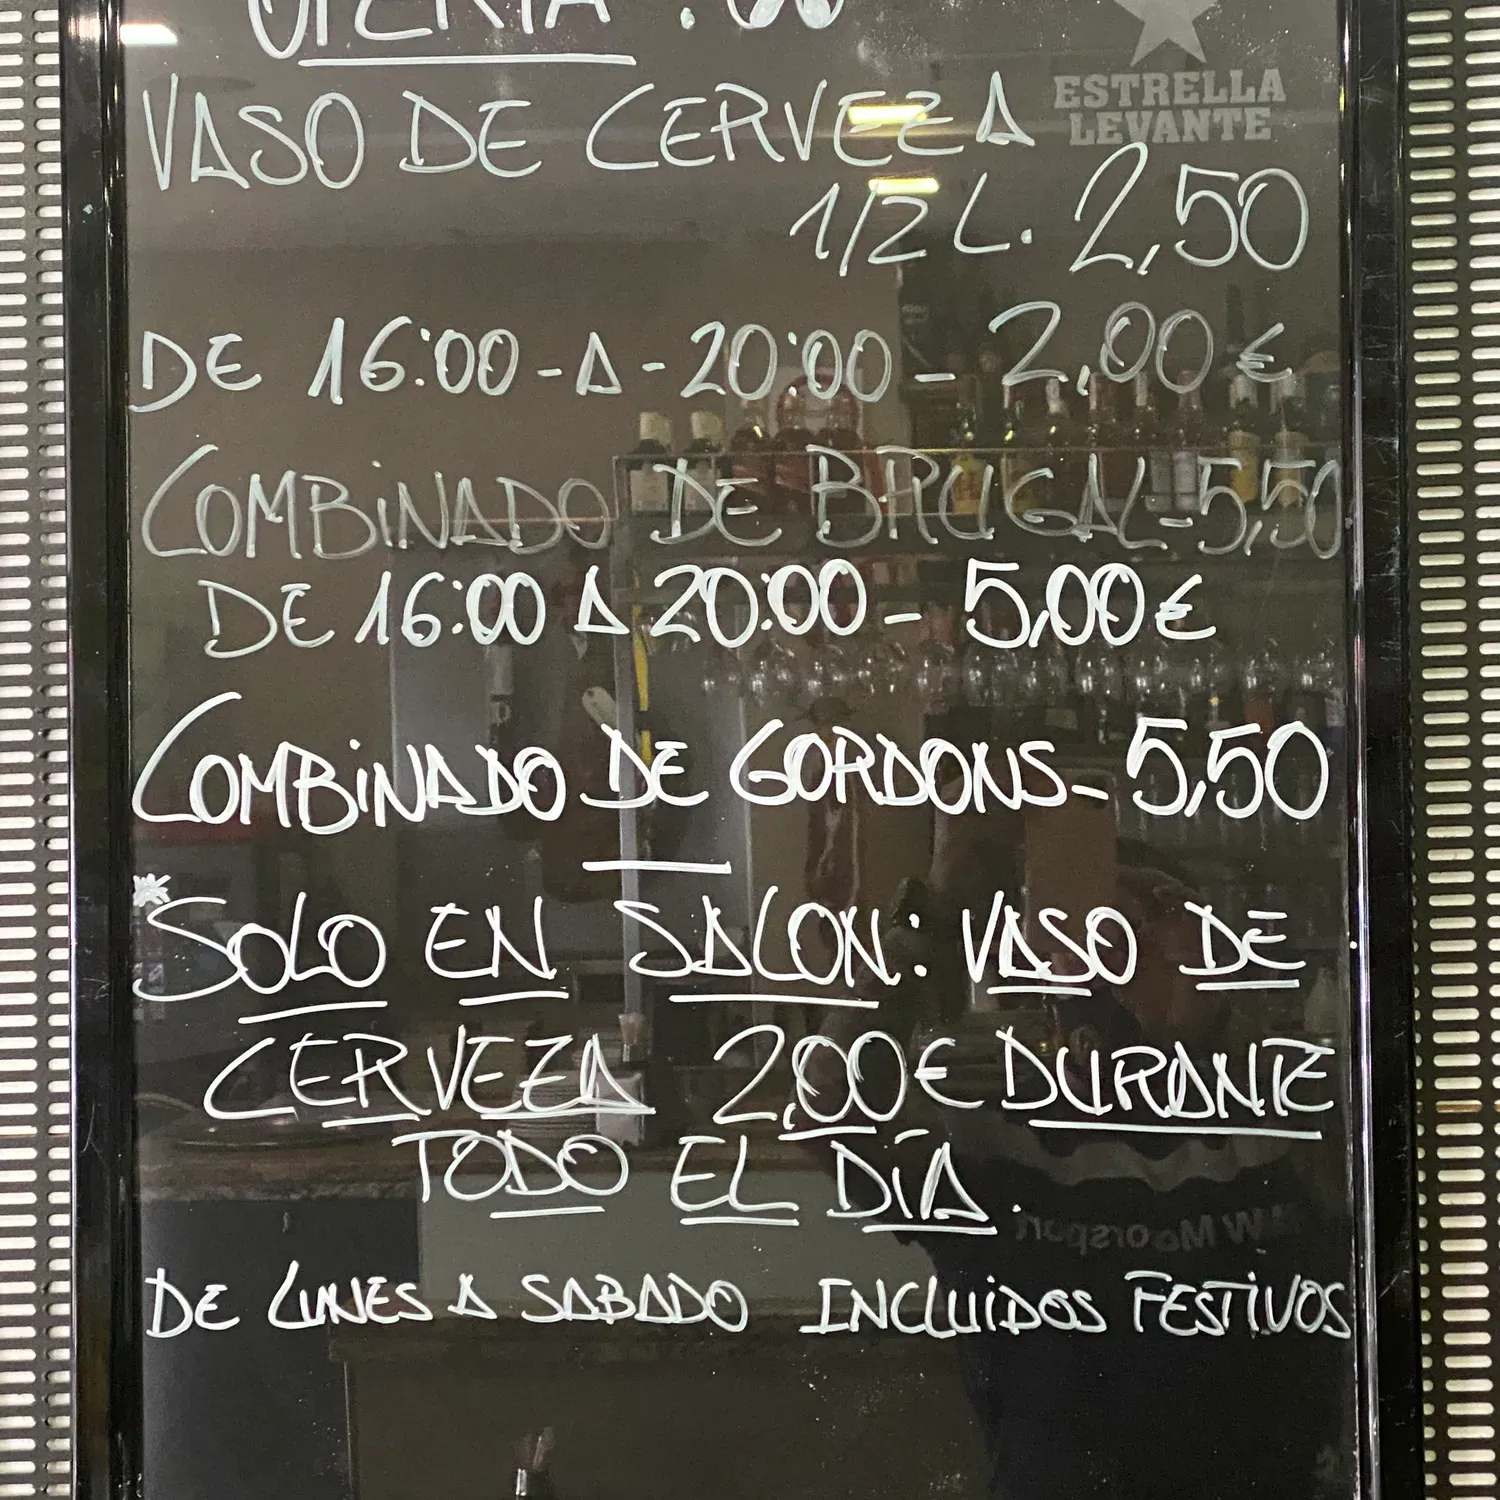 OFERTA :
ESTRELLA
LEVANTE
VASO DE CERVEZA
1/2 L. 2,50
DE 16:00 - A - 20:00 - 2,00 €
COMBINADO DE BRUGAL - 5,50
DE 16:00 A 20:00 - 5,00 €
COMBINADO DE GORDONS - 5,50
*SOLO EN SALON: VASO DE
CERVEZA 2,00 € DURANTE
TODO EL DÍA.
DE LUNES A SABADO INCLUIDOS FESTIVOS